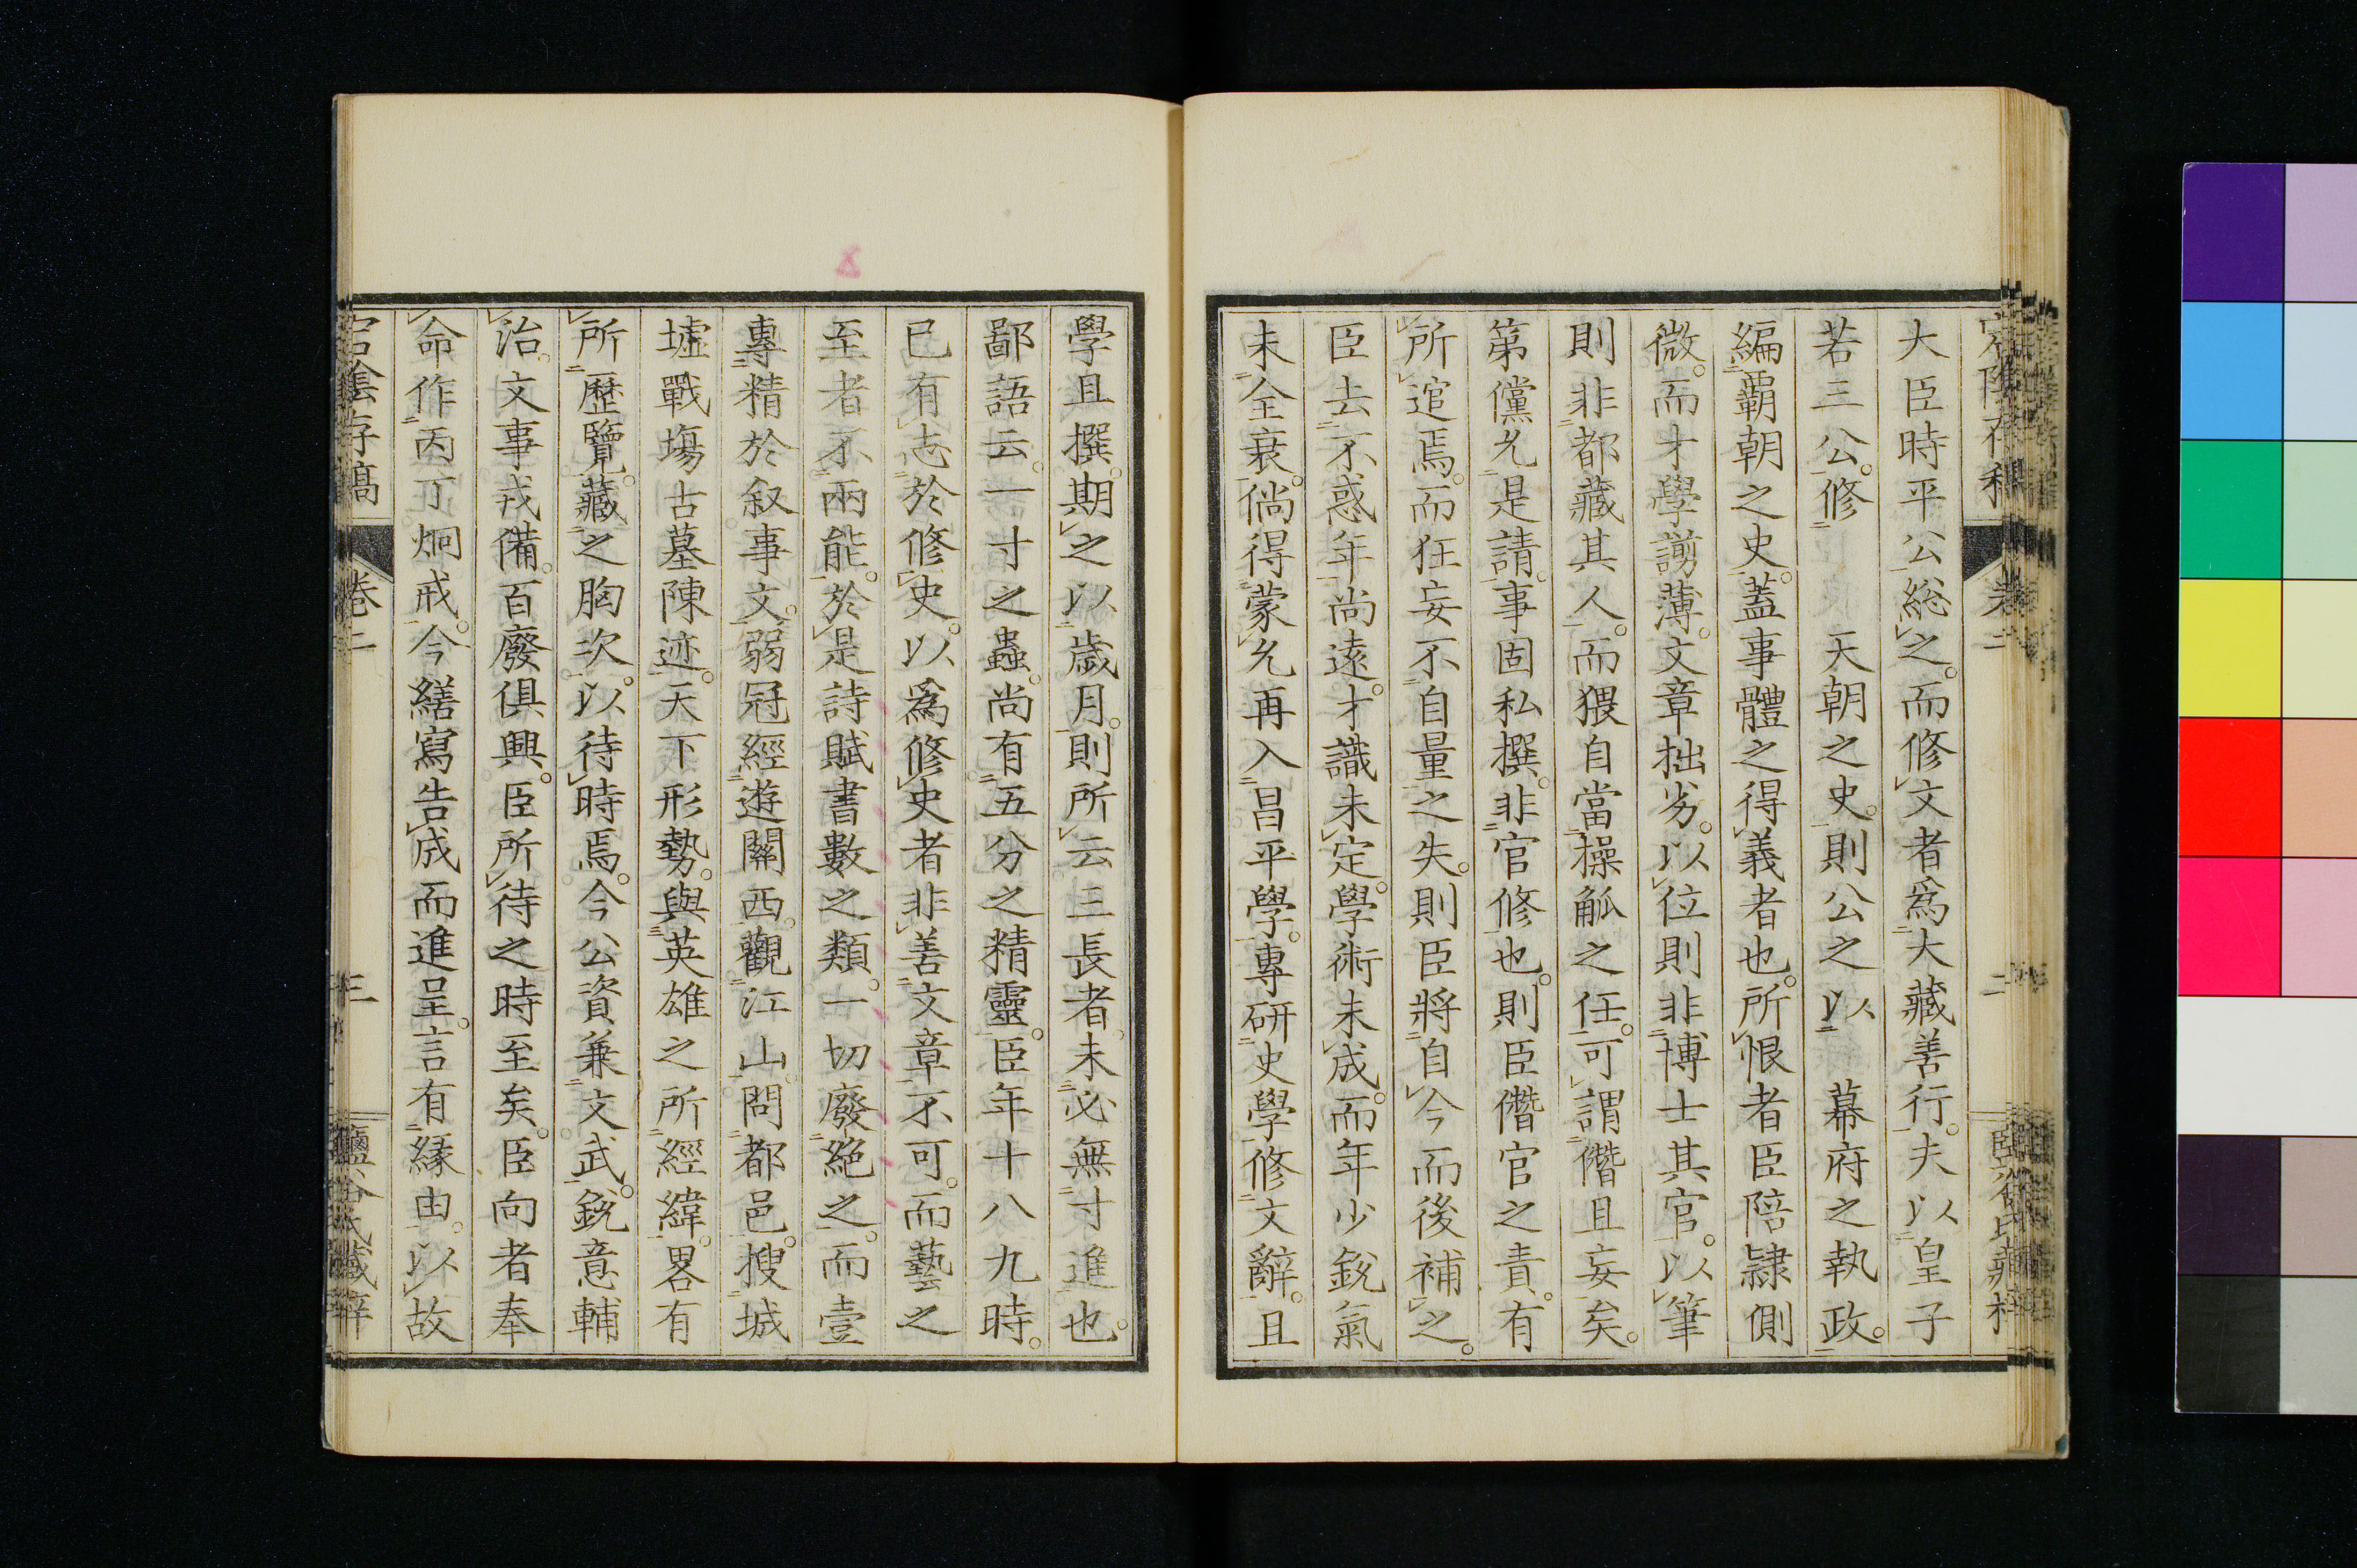 大臣時平公総之。而修文者爲大藏善行。夫以皇子
若三公。修　天朝之史。則公之以　幕府之執政。
編覇朝之史。蓋事體之得義者也。所恨者臣陪隷側
微。而才學謭薄。文章拙劣。以位則非博士其官。以筆
則非都藏其人。而猥自當操觚之任。可謂僭且妄矣。
第儻允是請。事固私撰。非官修也。則臣僭官之責。有
所逭焉。而狂妄不自量之失。則臣將自今而後補之。
臣去不惑年尚遠。才識未定。學術未成。而年少銳氣
未全衰。倘得蒙允再入昌平學。專研史學修文辭。且
學且撰。期之以歳月。則所云三長者。未必無寸進也。
鄙語云。一寸之蟲。尚有五分之精靈。臣年十八九時。
已有志於修史。以爲修史者非善文章不可。而藝之
至者不兩能。於是詩賦書數之類。一切廢絶之。而壹
專精於叙事文。弱冠經遊關西。觀江山。問都邑。搜城
墟戰塲古墓陳迹。天下形勢。與英雄之所經緯。畧有
所歷覽。藏之胸次。以待時焉。今公資兼文武。銳意輔
治。文事戎備。百廢俱興。臣所待之時至矣。臣向者奉
命作丙丁炯戒。今繕寫告成而進呈。言有緣由。以故
宕陰存稿　卷二　三